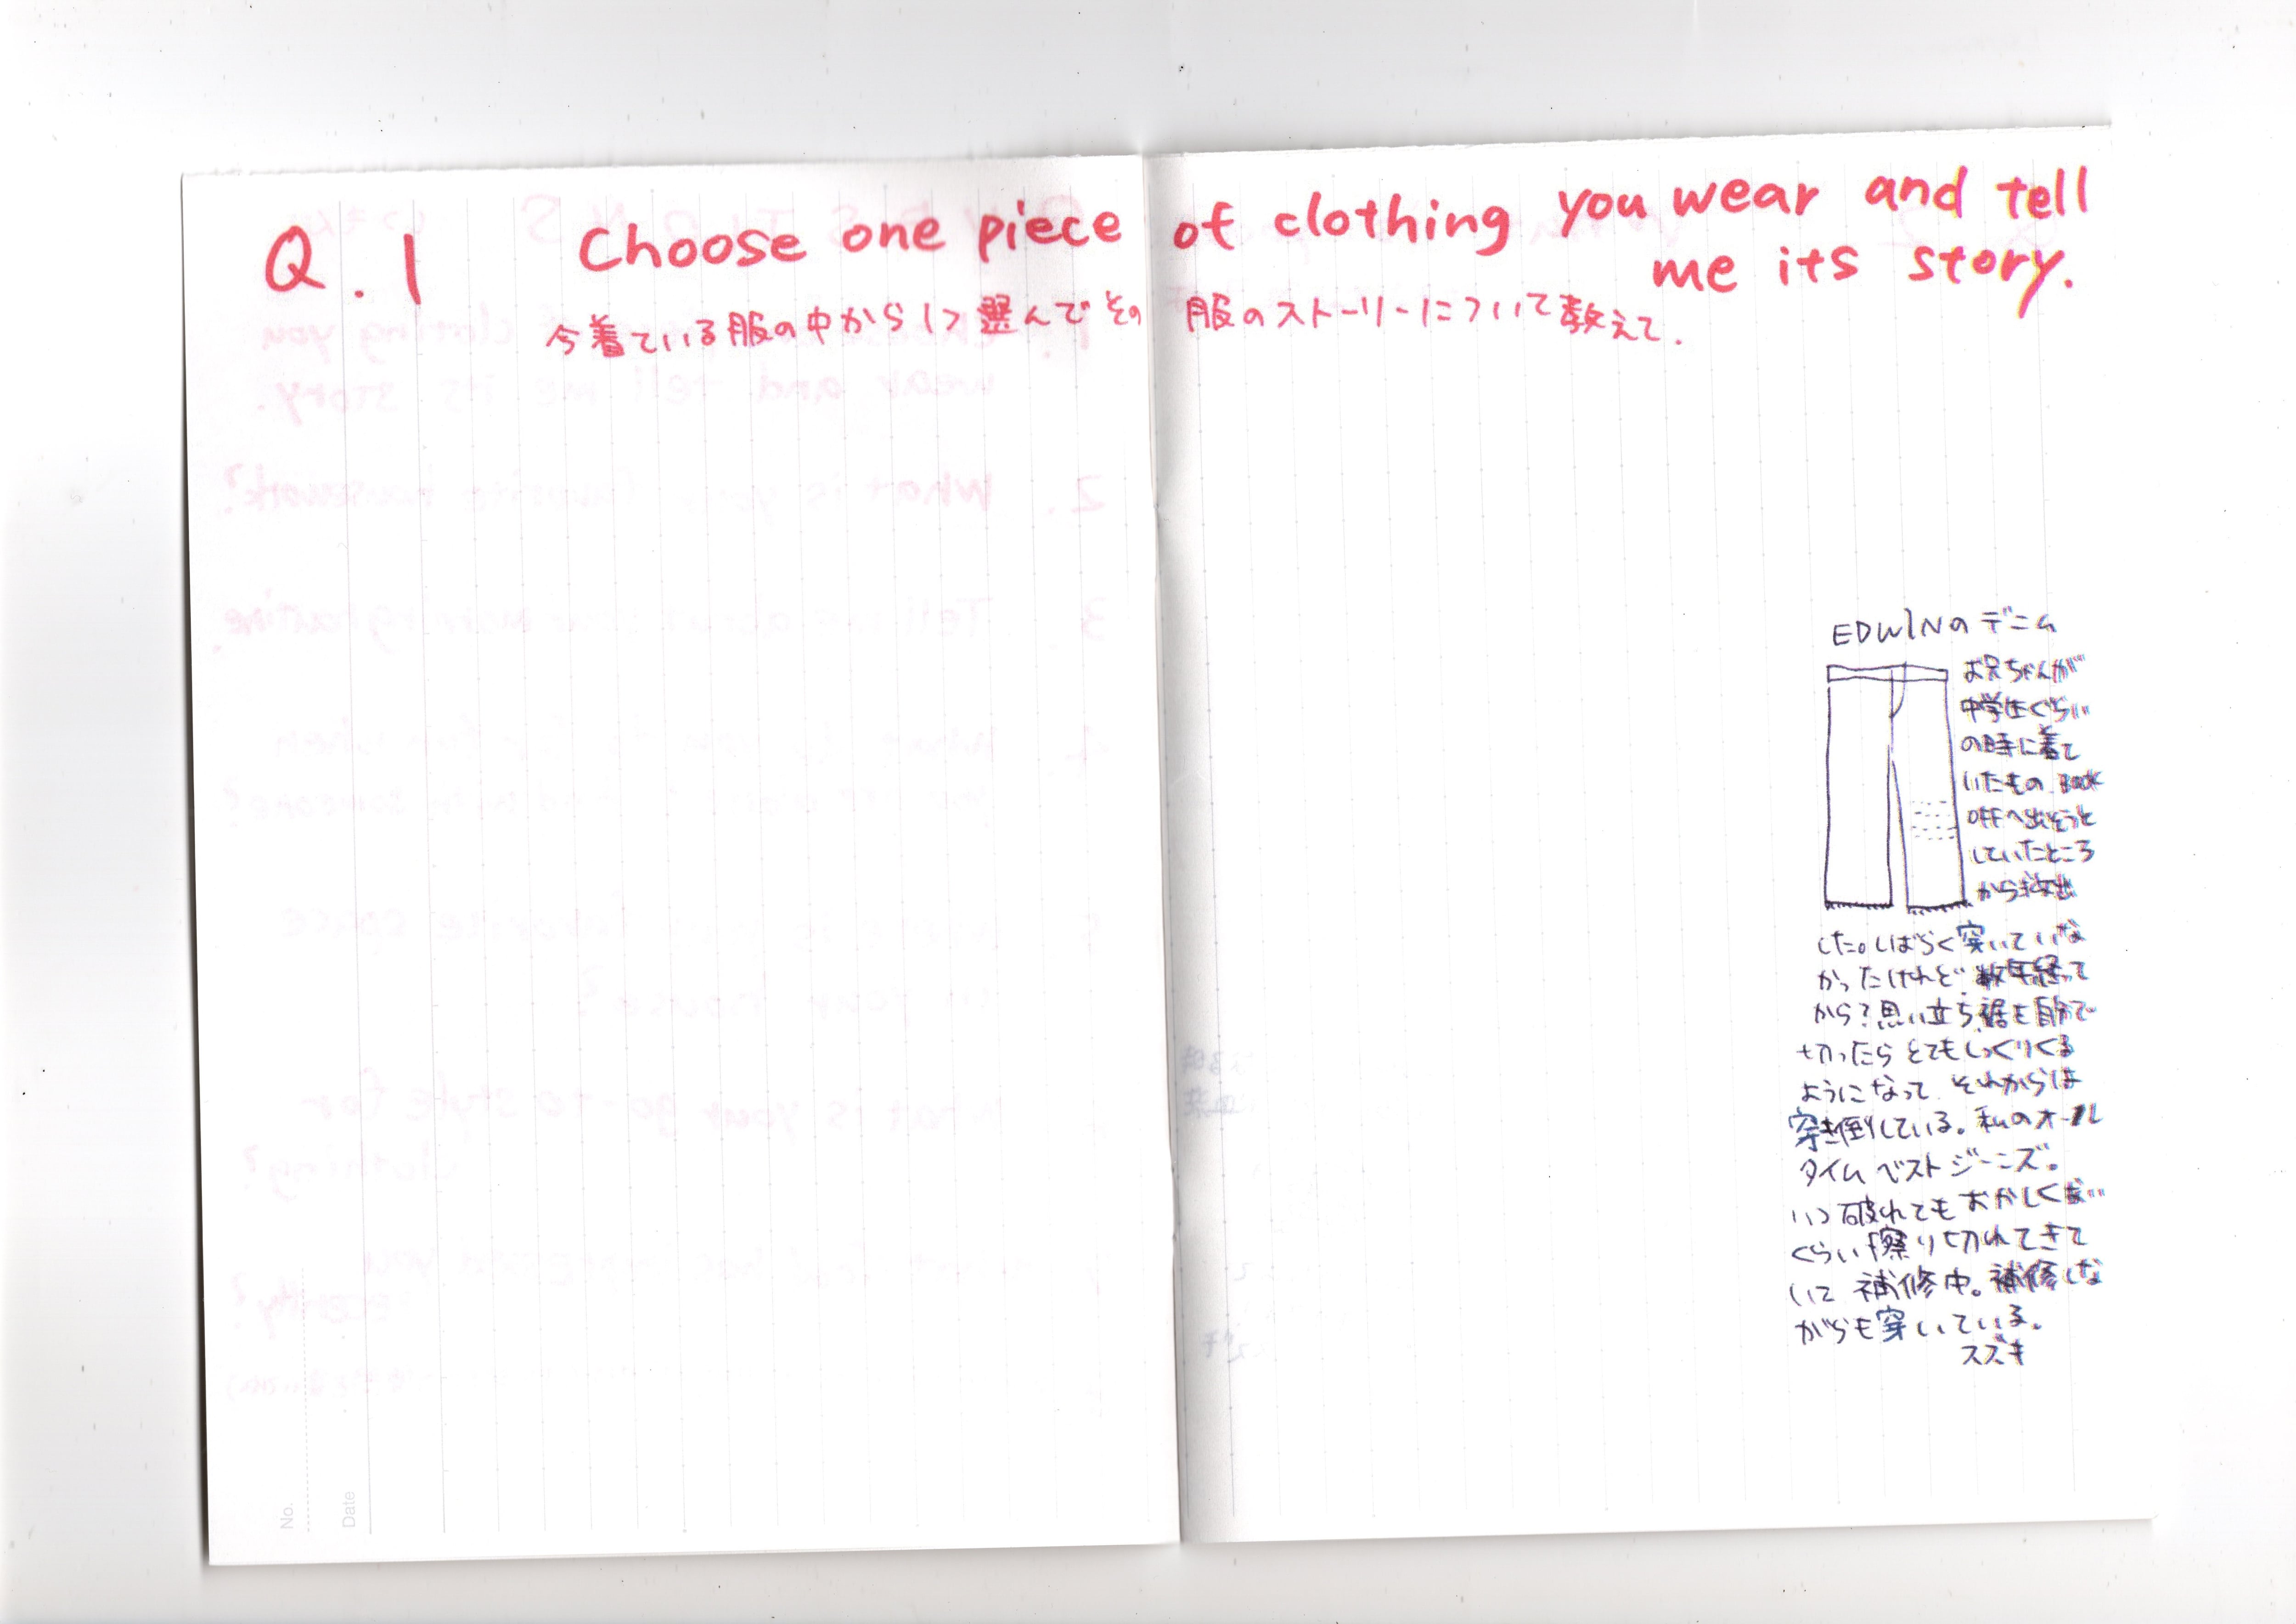 Q.1 Choose one piece of clothing you wear and tell
me its story.
今着ている服の中から1つ選んでその服のストーリーについて教えて.
EDWINのデニム
お兄ちゃんが
中学生ぐらい
の時に着て
いたもの. BOOK
OFFへ出そうと
していたところ
から救出
した。しばらく穿いていな
かったけれど、数年経って
から?思い立ち、裾を自分で
切ったらとてもしっくりくる
ようになって、それからは
穿き倒している。私のオール
タイム ベスト ジーンズ。
いつ破れてもおかしくない
ぐらい擦り切れてきて
いて 補修中。補修しな
がらも穿いている。
スズキ
No.
Date